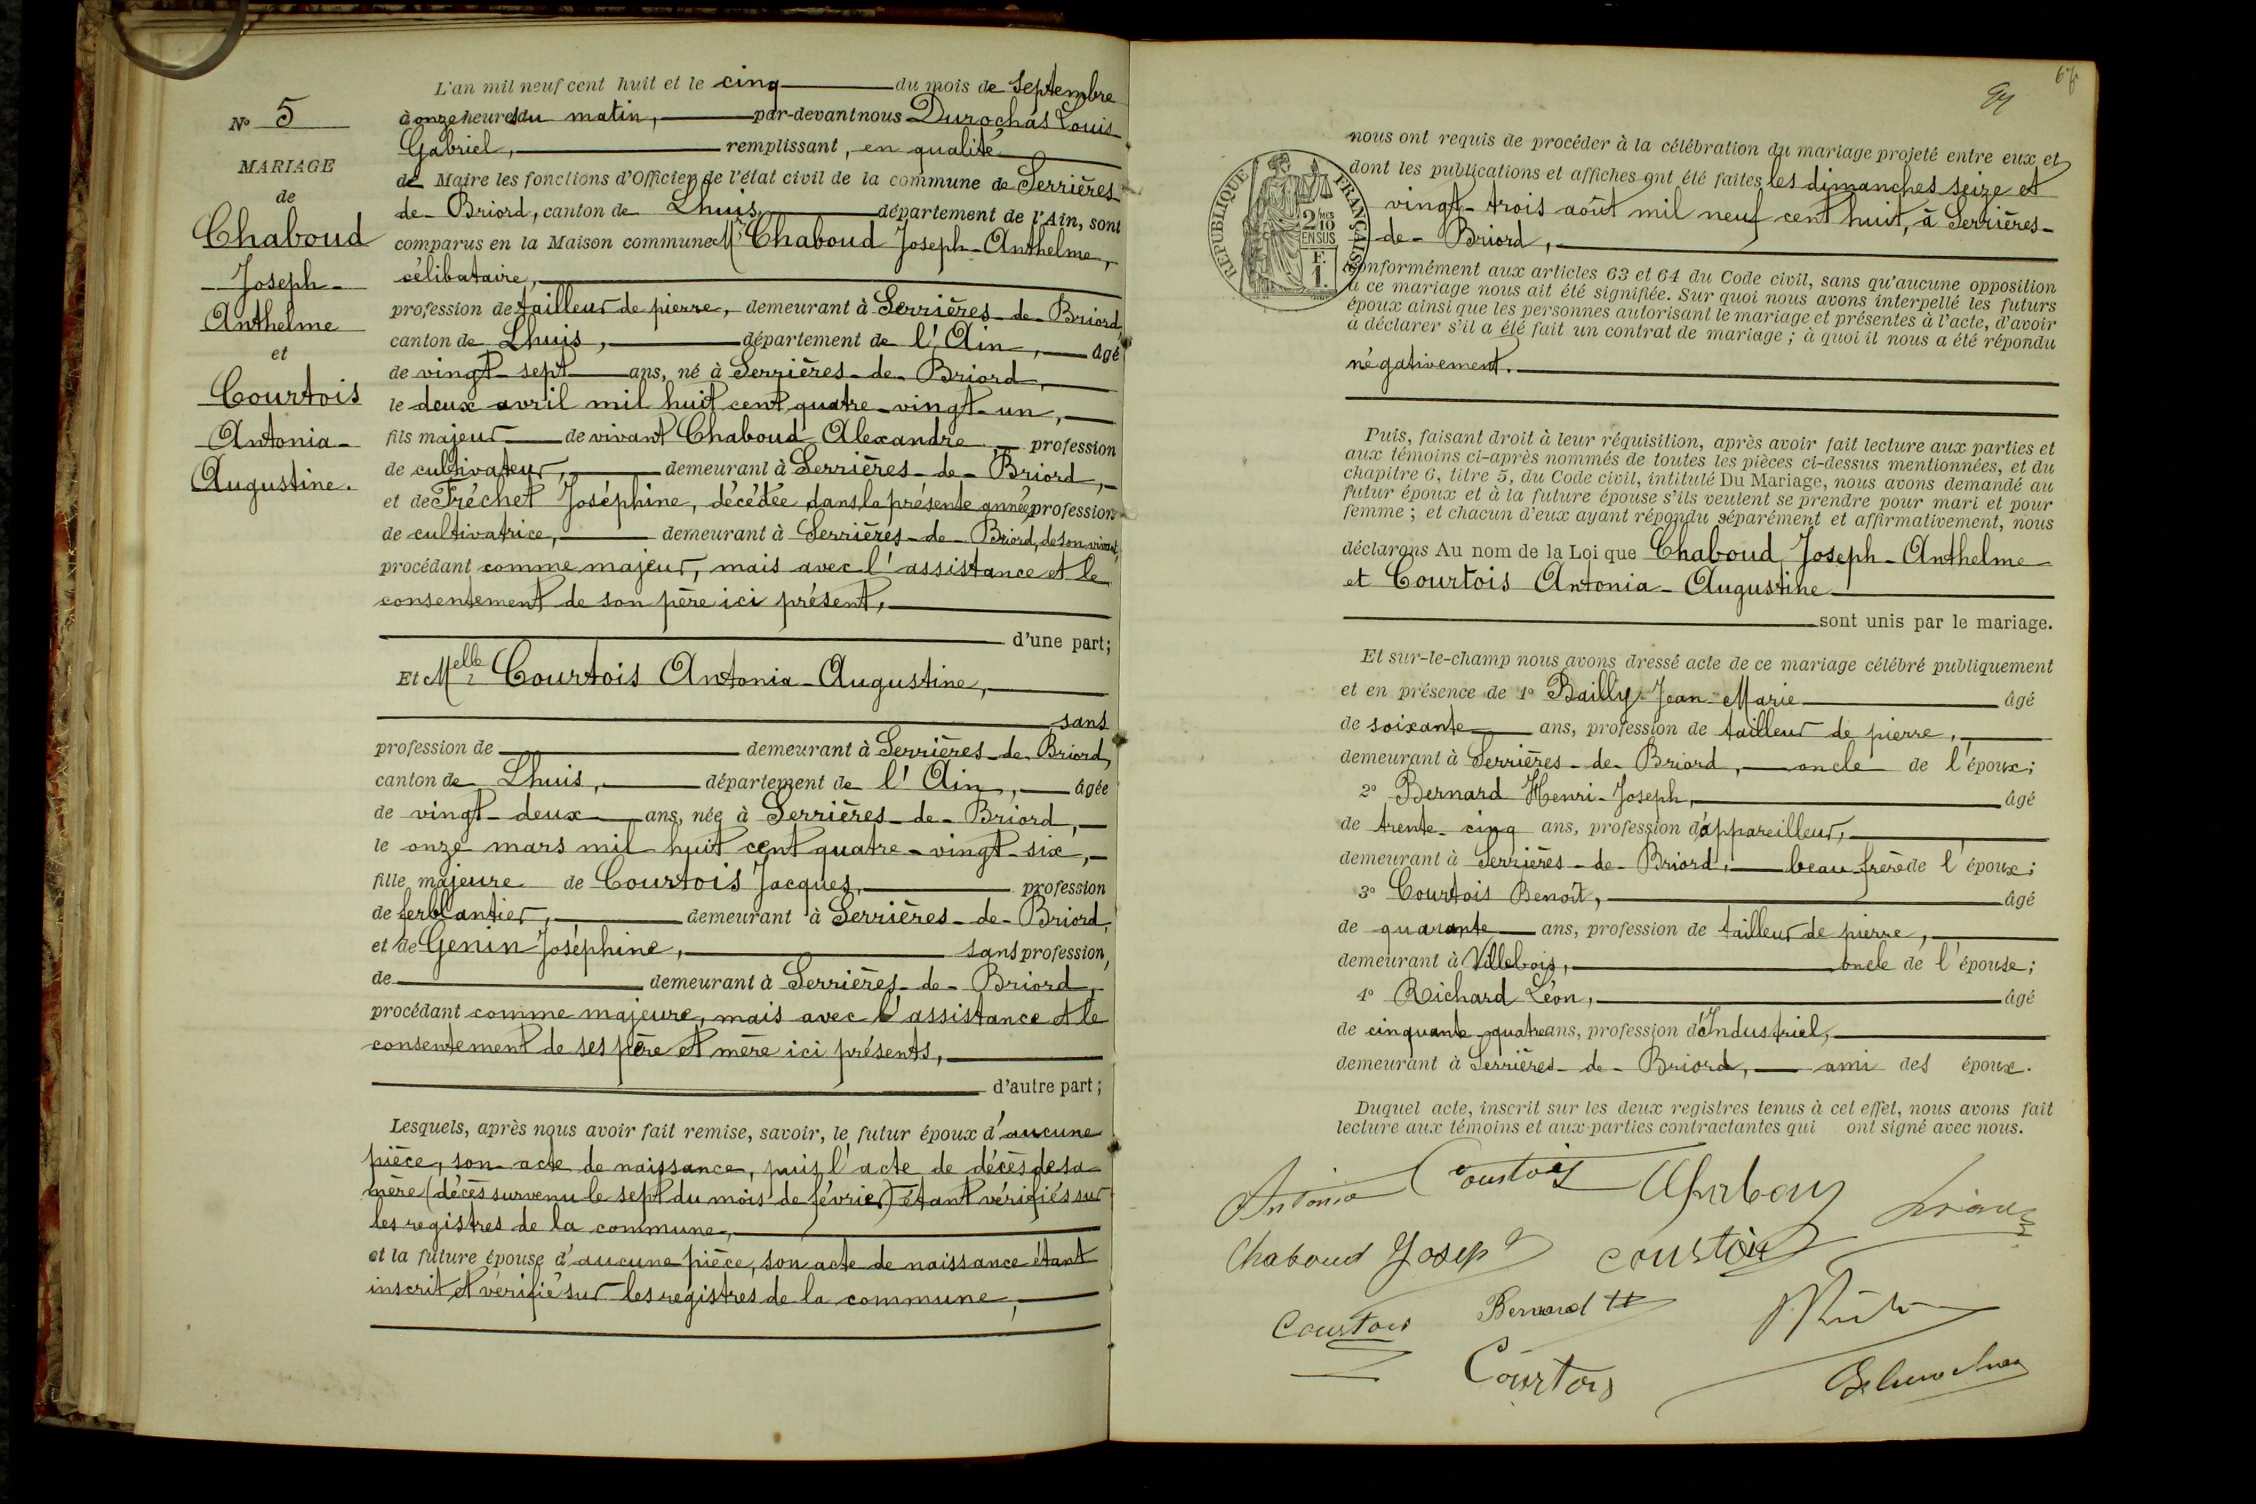 N° 5
MARIAGE
de
Chaboud
Joseph-
Anthelme
et
Courtois
Antonia-
Augustine.
L'an mil neuf cent huit et le cinq du mois de Septembre
à onze heures du matin, par-devant nous Durochas Louis
Gabriel, remplissant, en qualité
de Maire les fonctions d'Officier de l'état civil de la commune de Serrières-
de-Briord, canton de Lhuis, département de l'Ain, sont
comparus en la Maison commune Mr Chaboud Joseph-Anthelme,
célibataire,
profession de tailleur de pierre, demeurant à Serrières-de-Briord,
canton de Lhuis, département de l'Ain, âgé
de vingt-sept ans, né à Serrières-de-Briord,
le deux avril mil huit cent quatre-vingt-un,
fils majeur de vivant Chaboud Alexandre, profession
de cultivateur, demeurant à Serrières-de-Briord,
et de Fréchet Joséphine, décédée dans la présente année, profession
de cultivatrice, demeurant à Serrières-de-Briord, de son vivant,
procédant comme majeur, mais avec l'assistance et le
consentement de son père ici présent,
d'une part;
Et Melle Courtois Antonia-Augustine,
sans
profession de demeurant à Serrières-de-Briord,
canton de Lhuis, département de l'Ain, âgée
de vingt-deux ans, née à Serrières-de-Briord,
le onze mars mil huit cent quatre-vingt-six,
fille majeure de Courtois Jacques, profession
de ferblantier, demeurant à Serrières-de-Briord,
et de Genin Joséphine, sans profession,
de demeurant à Serrières-de-Briord,
procédant comme majeure, mais avec l'assistance et le
consentement de ses père et mère ici présents,
d'autre part;
Lesquels, après nous avoir fait remise, savoir, le futur époux d'aucune
pièce, son acte de naissance, puis l'acte de décès de sa
mère (décès survenu le sept du mois de février) étant vérifiés sur
les registres de la commune,
et la future épouse d'aucune pièce, son acte de naissance étant
inscrit et vérifié sur les registres de la commune,
RÉPUBLIQUE FRANÇAISE
2/10mes
EN SUS
F.
1.
nous ont requis de procéder à la célébration du mariage projeté entre eux et
dont les publications et affiches ont été faites les dimanches seize et
vingt-trois août mil neuf cent huit, à Serrières-
de-Briord,
conformément aux articles 63 et 64 du Code civil, sans qu'aucune opposition
à ce mariage nous ait été signifiée. Sur quoi nous avons interpellé les futurs
époux ainsi que les personnes autorisant le mariage et présentes à l'acte, d'avoir
à déclarer s'il a été fait un contrat de mariage; à quoi il nous a été répondu
négativement.
Puis, faisant droit à leur réquisition, après avoir fait lecture aux parties et
aux témoins ci-après nommés de toutes les pièces ci-dessus mentionnées, et du
chapitre 6, titre 5, du Code civil, intitulé Du Mariage, nous avons demandé au
futur époux et à la future épouse s'ils veulent se prendre pour mari et pour
femme; et chacun d'eux ayant répondu séparément et affirmativement, nous
déclarons Au nom de la Loi que Chaboud Joseph-Anthelme
et Courtois Antonia-Augustine
sont unis par le mariage.
Et sur-le-champ nous avons dressé acte de ce mariage célébré publiquement
et en présence de 1° Bailly Jean-Marie âgé
de soixante ans, profession de tailleur de pierre,
demeurant à Serrières-de-Briord, oncle de l'époux;
2° Bernard Henri-Joseph, âgé
de trente-cinq ans, profession d'appareilleur,
demeurant à Serrières-de-Briord, beau frère de l'époux;
3° Courtois Benoît, âgé
de quarante ans, profession de tailleur de pierre,
demeurant à Villebois, oncle de l'épouse;
4° Richard Léon, âgé
de cinquante-quatre ans, profession d'Industriel,
demeurant à Serrières-de-Briord, ami des époux.
Duquel acte, inscrit sur les deux registres tenus à cet effet, nous avons fait
lecture aux témoins et aux parties contractantes qui ont signé avec nous.
Antonia Courtois
Chaboud Joseph Courtois
Courtois Bernard H
Courtois